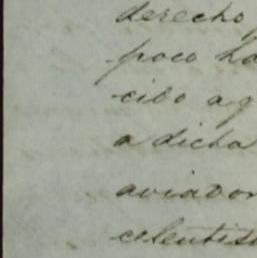 derecho
poco ha
cido aq
a dicha
aviador
celentis